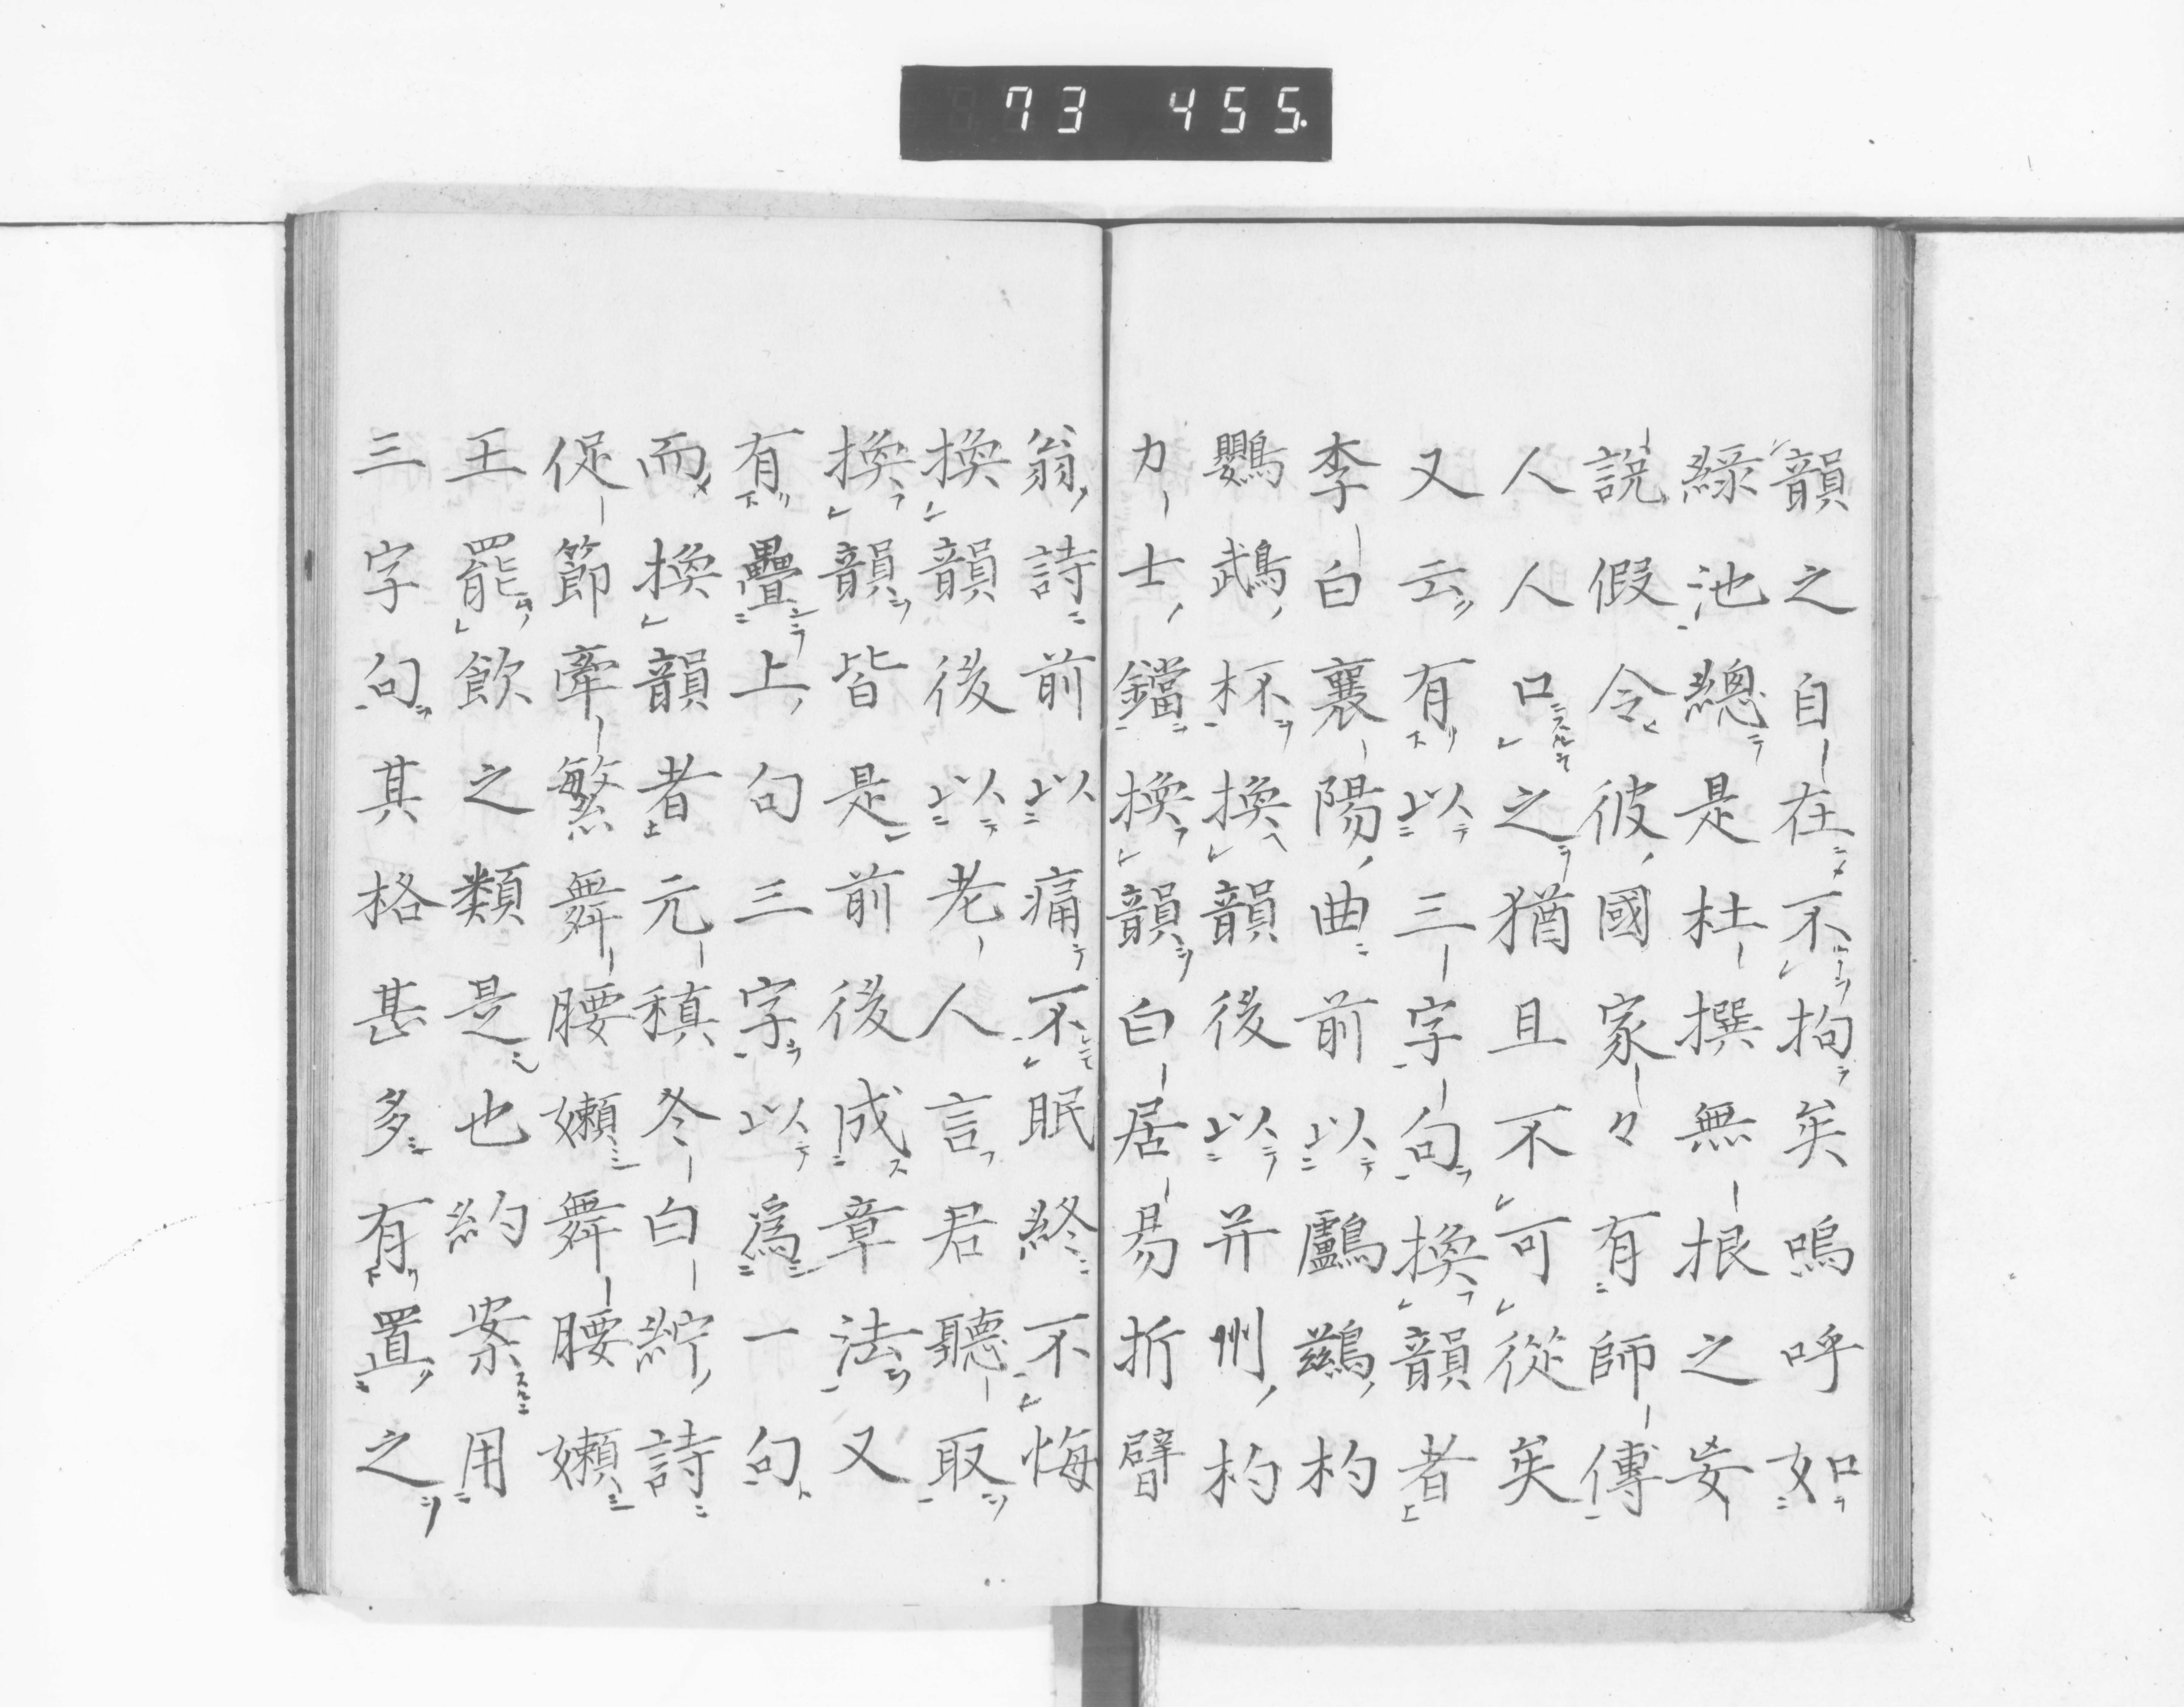 73 455.
韻之自在不拘矣嗚呼如
綠池總是杜撰無根之妄
說假令彼國家々有師傳
人人口之猶且不可從矣
又云有以三字句換韻者
李白襄陽曲前以鸕鷀杓
鸚鵡杯換韻後以并州杓
力士鐺換韻白居易折臂
翁詩前以痛不眠終不悔
換韻後以老人言君聽取
換韻皆是前後成章法又
有疊上句三字以爲一句
而換韻者元稹冬白紵詩
促節牽繁舞腰嬾舞腰嬾
王罷飲之類是也約案用
三字句其格甚多有置之